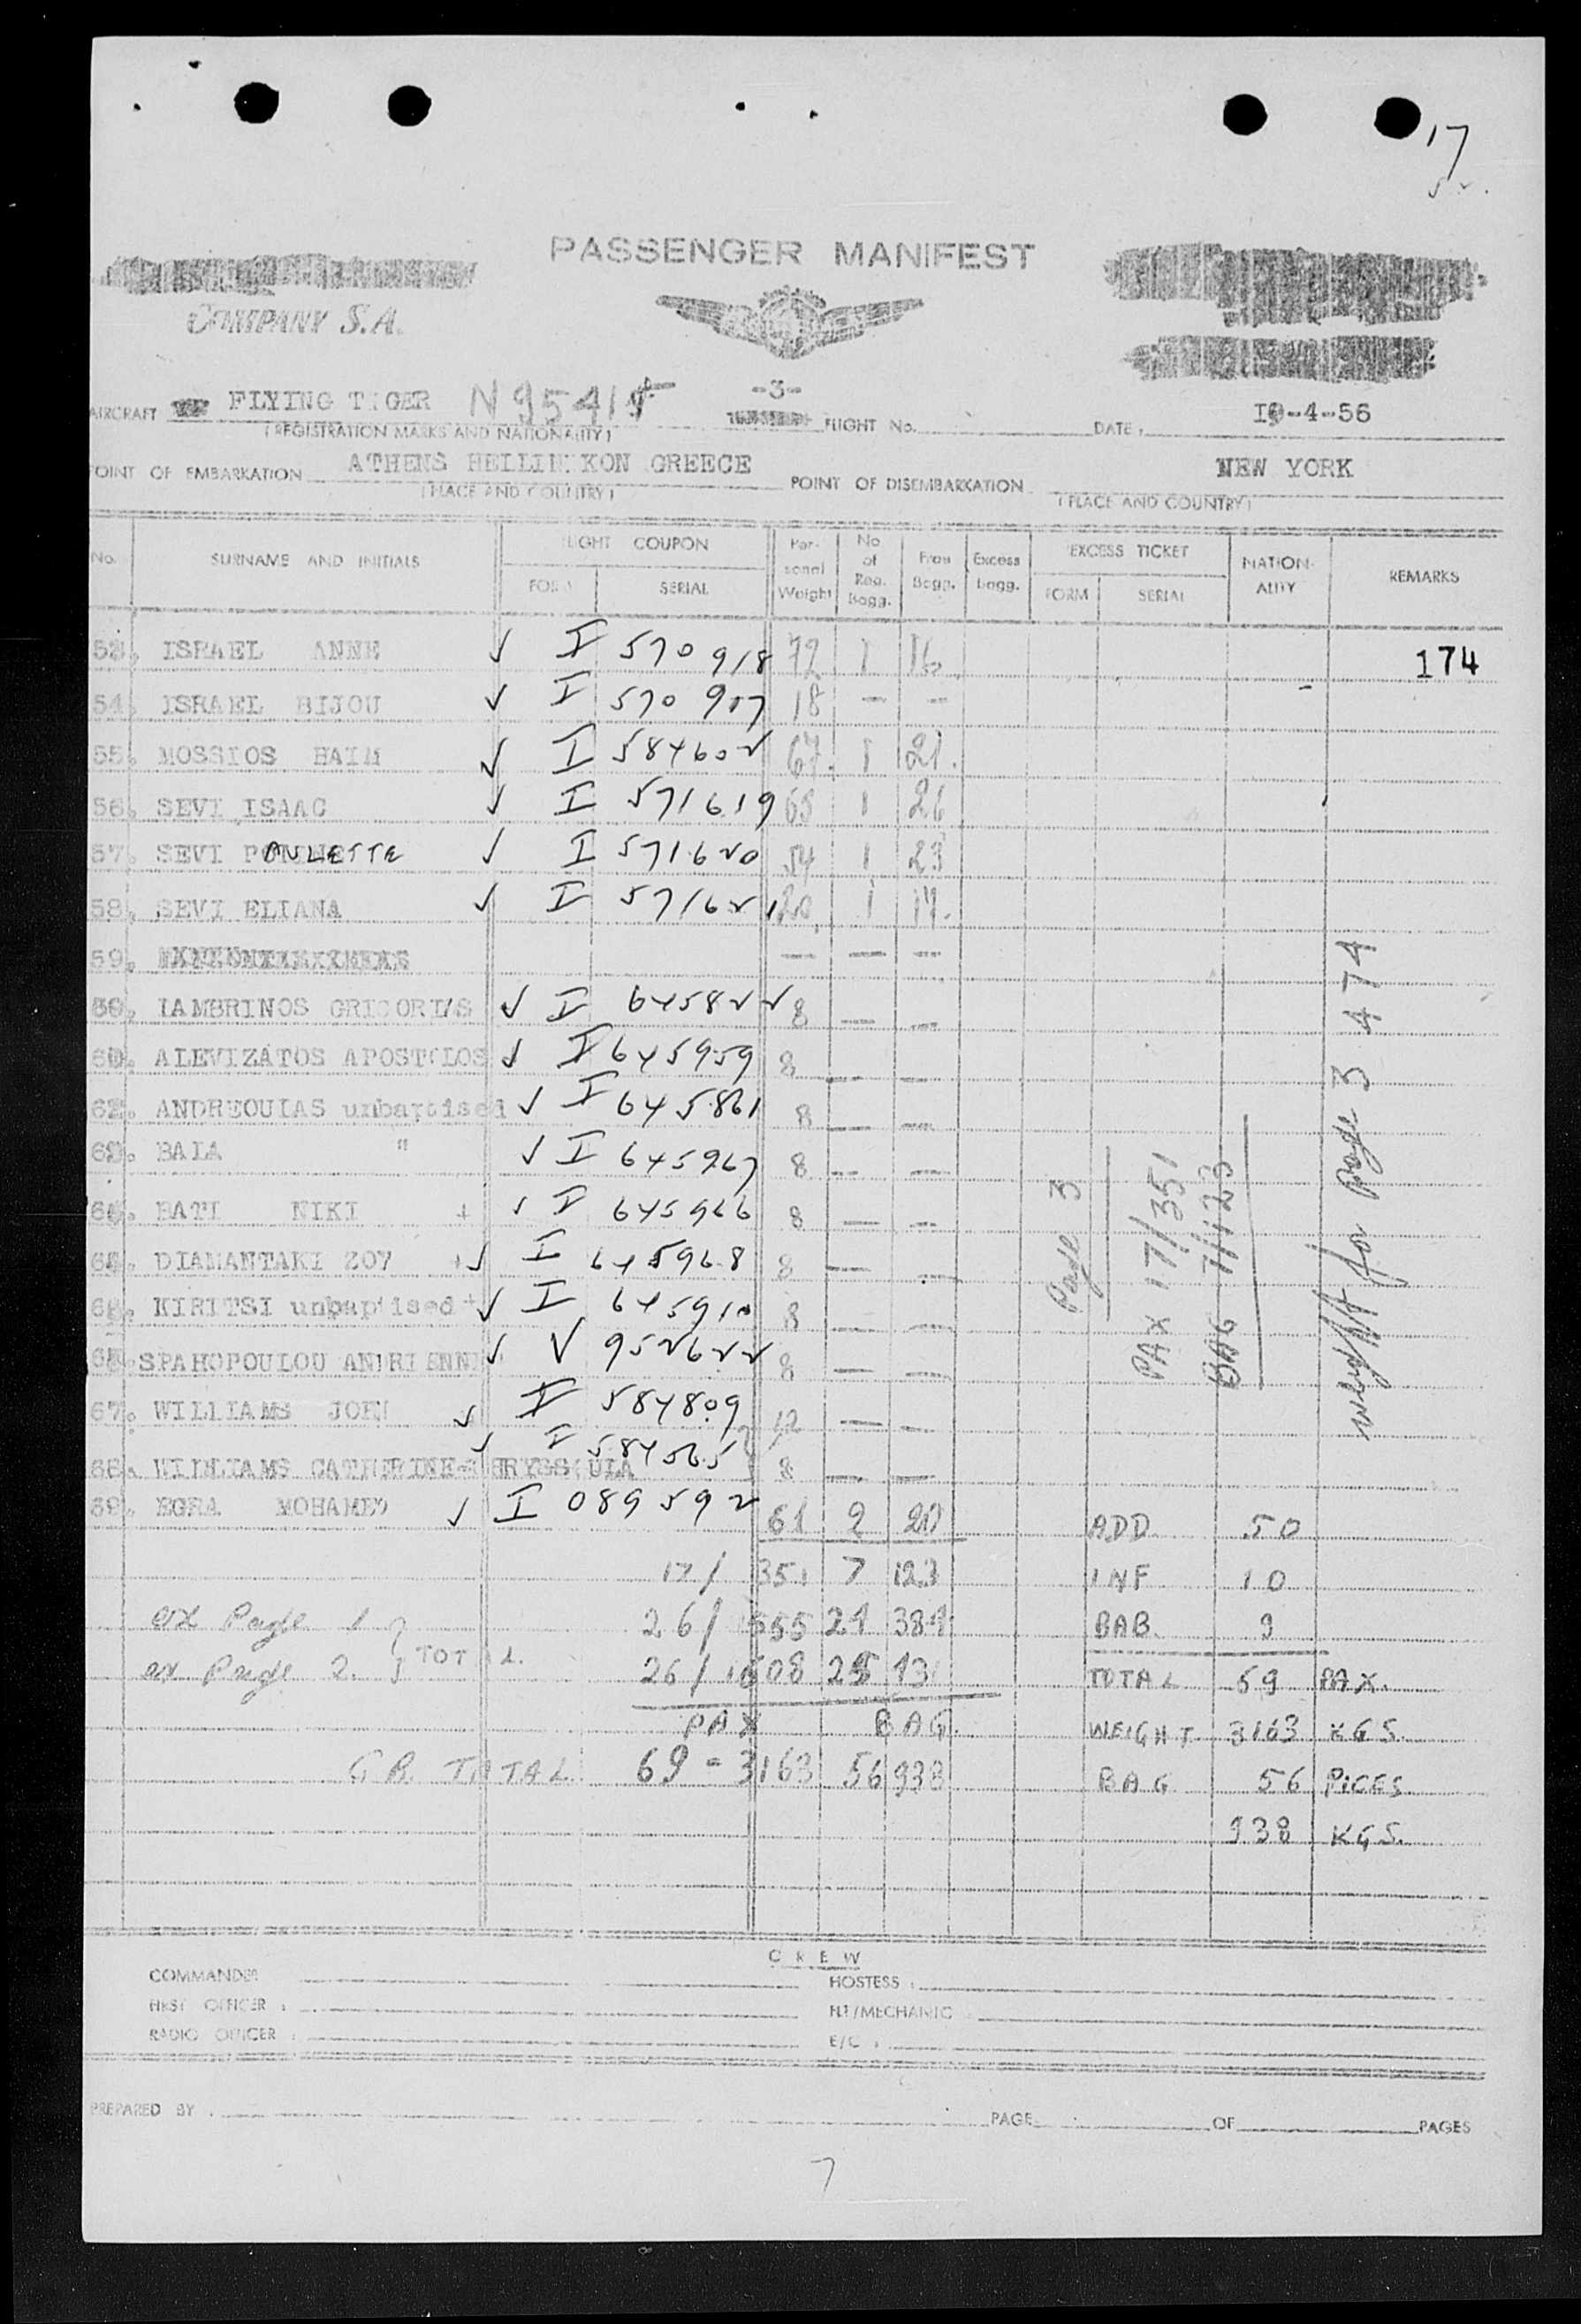 17
PASSENGER MANIFEST
COMPANY S.A.
AIRCRAFT FLYING TIGER N 9541 -3- FLIGHT No. DATE: -4-56
(REGISTRATION MARKS AND NATIONALITY)
POINT OF EMBARKATION ATHENS HELLINIKON GREECE POINT OF DISEMBARKATION NEW YORK
(PLACE AND COUNTRY) (PLACE AND COUNTRY)
No. SURNAME AND INITIALS FLIGHT COUPON FORM SERIAL Personal Weight No of Reg. Bagg. Free Bagg. Excess Bagg. EXCESS TICKET FORM SERIAL NATIONALITY REMARKS
53. ISRAEL ANNE √ I 570918 72 1 16 174
54. ISRAEL BIJOU √ I 570917 18 — —
55. MOSSIOS HAIM √ I 584602 67 1 21
56. SEVI ISAAC √ I 571619 65 1 26
57. SEVI PAULETTE √ I 571620 54 1 23
58. SEVI ELIANA √ I 571621 20 1 17
59. — — —
LAMBRINOS GRIGORIS √ I 645822 8 — —
ALEVIZATOS APOSTOLOS √ I 645959 8 — —
ANDREOULAS unbaptised √ I 645861 8 — —
BALA " √ I 645967 8 — —
BATI NIKI + √ I 645966 8 — —
DIAMANTAKI ZOY √ I 645968 8 — —
KIRITSI unbaptised + √ I 645910 8 — —
SPAHOPOULOU ANDRIENNE √ V 952622 8 — —
67. WILLIAMS JOHN √ I 584809 12 — —
68. WILLIAMS CATHERINE √ I 584565 8 — —
69. EGRA MOHAMED √ I 089592 61 2 20 ADD 50
17/ 351 7 123 INF 10
ex Page 1 26/ 24 384 BAB. 9
ex Page 2. } TOTAL. 26/ TOTAL 69 PAX.
PAX BAG. WEIGHT 3163 KGS.
GR. TOTAL 69 = 3163 56 938 BAG 56 PICES
938 KGS.
Page 3
PAX 17/351
BAG 7/123
weight for Page 3 474
CREW
COMMANDER HOSTESS :
FIRST OFFICER : FLT/MECHANIC
RADIO OFFICER : E/C :
PREPARED BY : PAGE OF PAGES
7